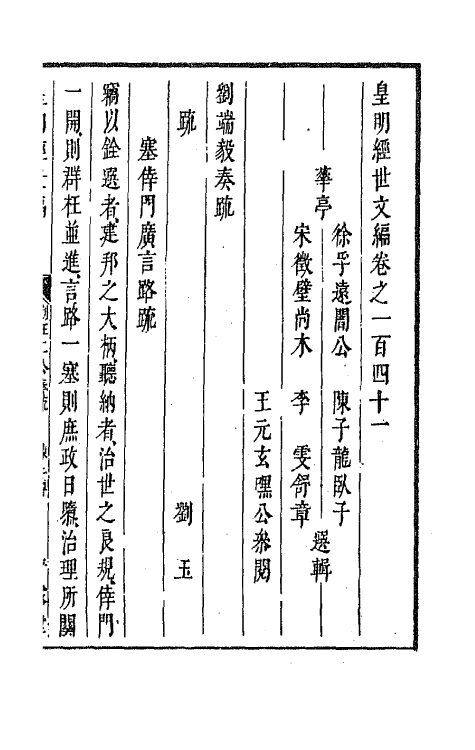 皇明經世文編卷之一百四十一
華亭
徐孚遠闇公 陳子龍臥子
宋徵璧尚木 李 雯舒章
選輯
王元玄嘿公叅閱
劉端毅奏疏
疏 劉 玉
塞倖門廣言路疏
竊以銓選者、建邦之大柄、聽納者、治世之良規、倖門
一開、則群枉並進、言路一塞、則庶政日隳、治理所關